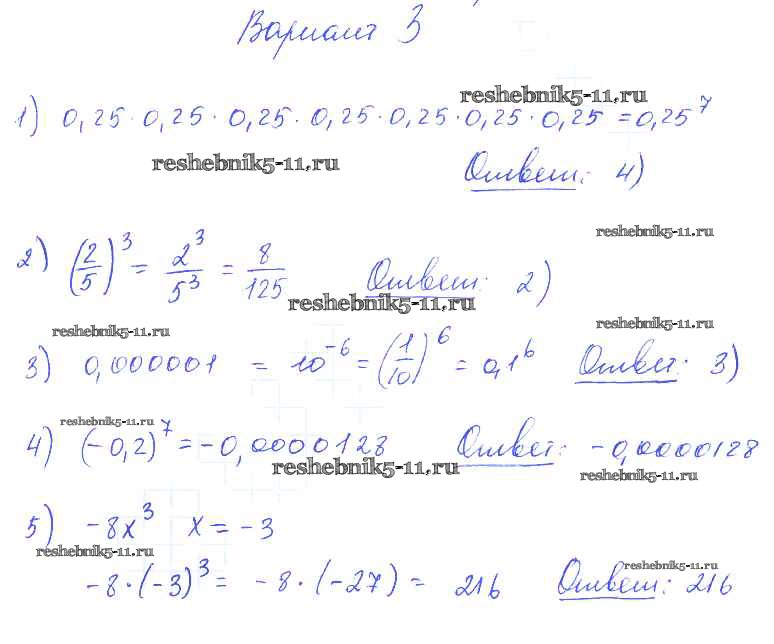 Вариант 3
reshebnik5-11.ru
1) 0,25 · 0,25 · 0,25 · 0,25 · 0,25 · 0,25 · 0,25 = 0,25⁷
reshebnik5-11.ru
Ответ: 4)
reshebnik5-11.ru
2) (2/5)³ = 2³/5³ = 8/125 Ответ: 2)
reshebnik5-11.ru
reshebnik5-11.ru
reshebnik5-11.ru
3) 0,000001 = 10⁻⁶ = (1/10)⁶ = 0,1⁶ Ответ: 3)
reshebnik5-11.ru
4) (-0,2)⁷ = -0,0000128 Ответ: -0,0000128
reshebnik5-11.ru
reshebnik5-11.ru
5) -8x³ x = -3
reshebnik5-11.ru
reshebnik5-11.ru
-8 · (-3)³ = -8 · (-27) = 216 Ответ: 216